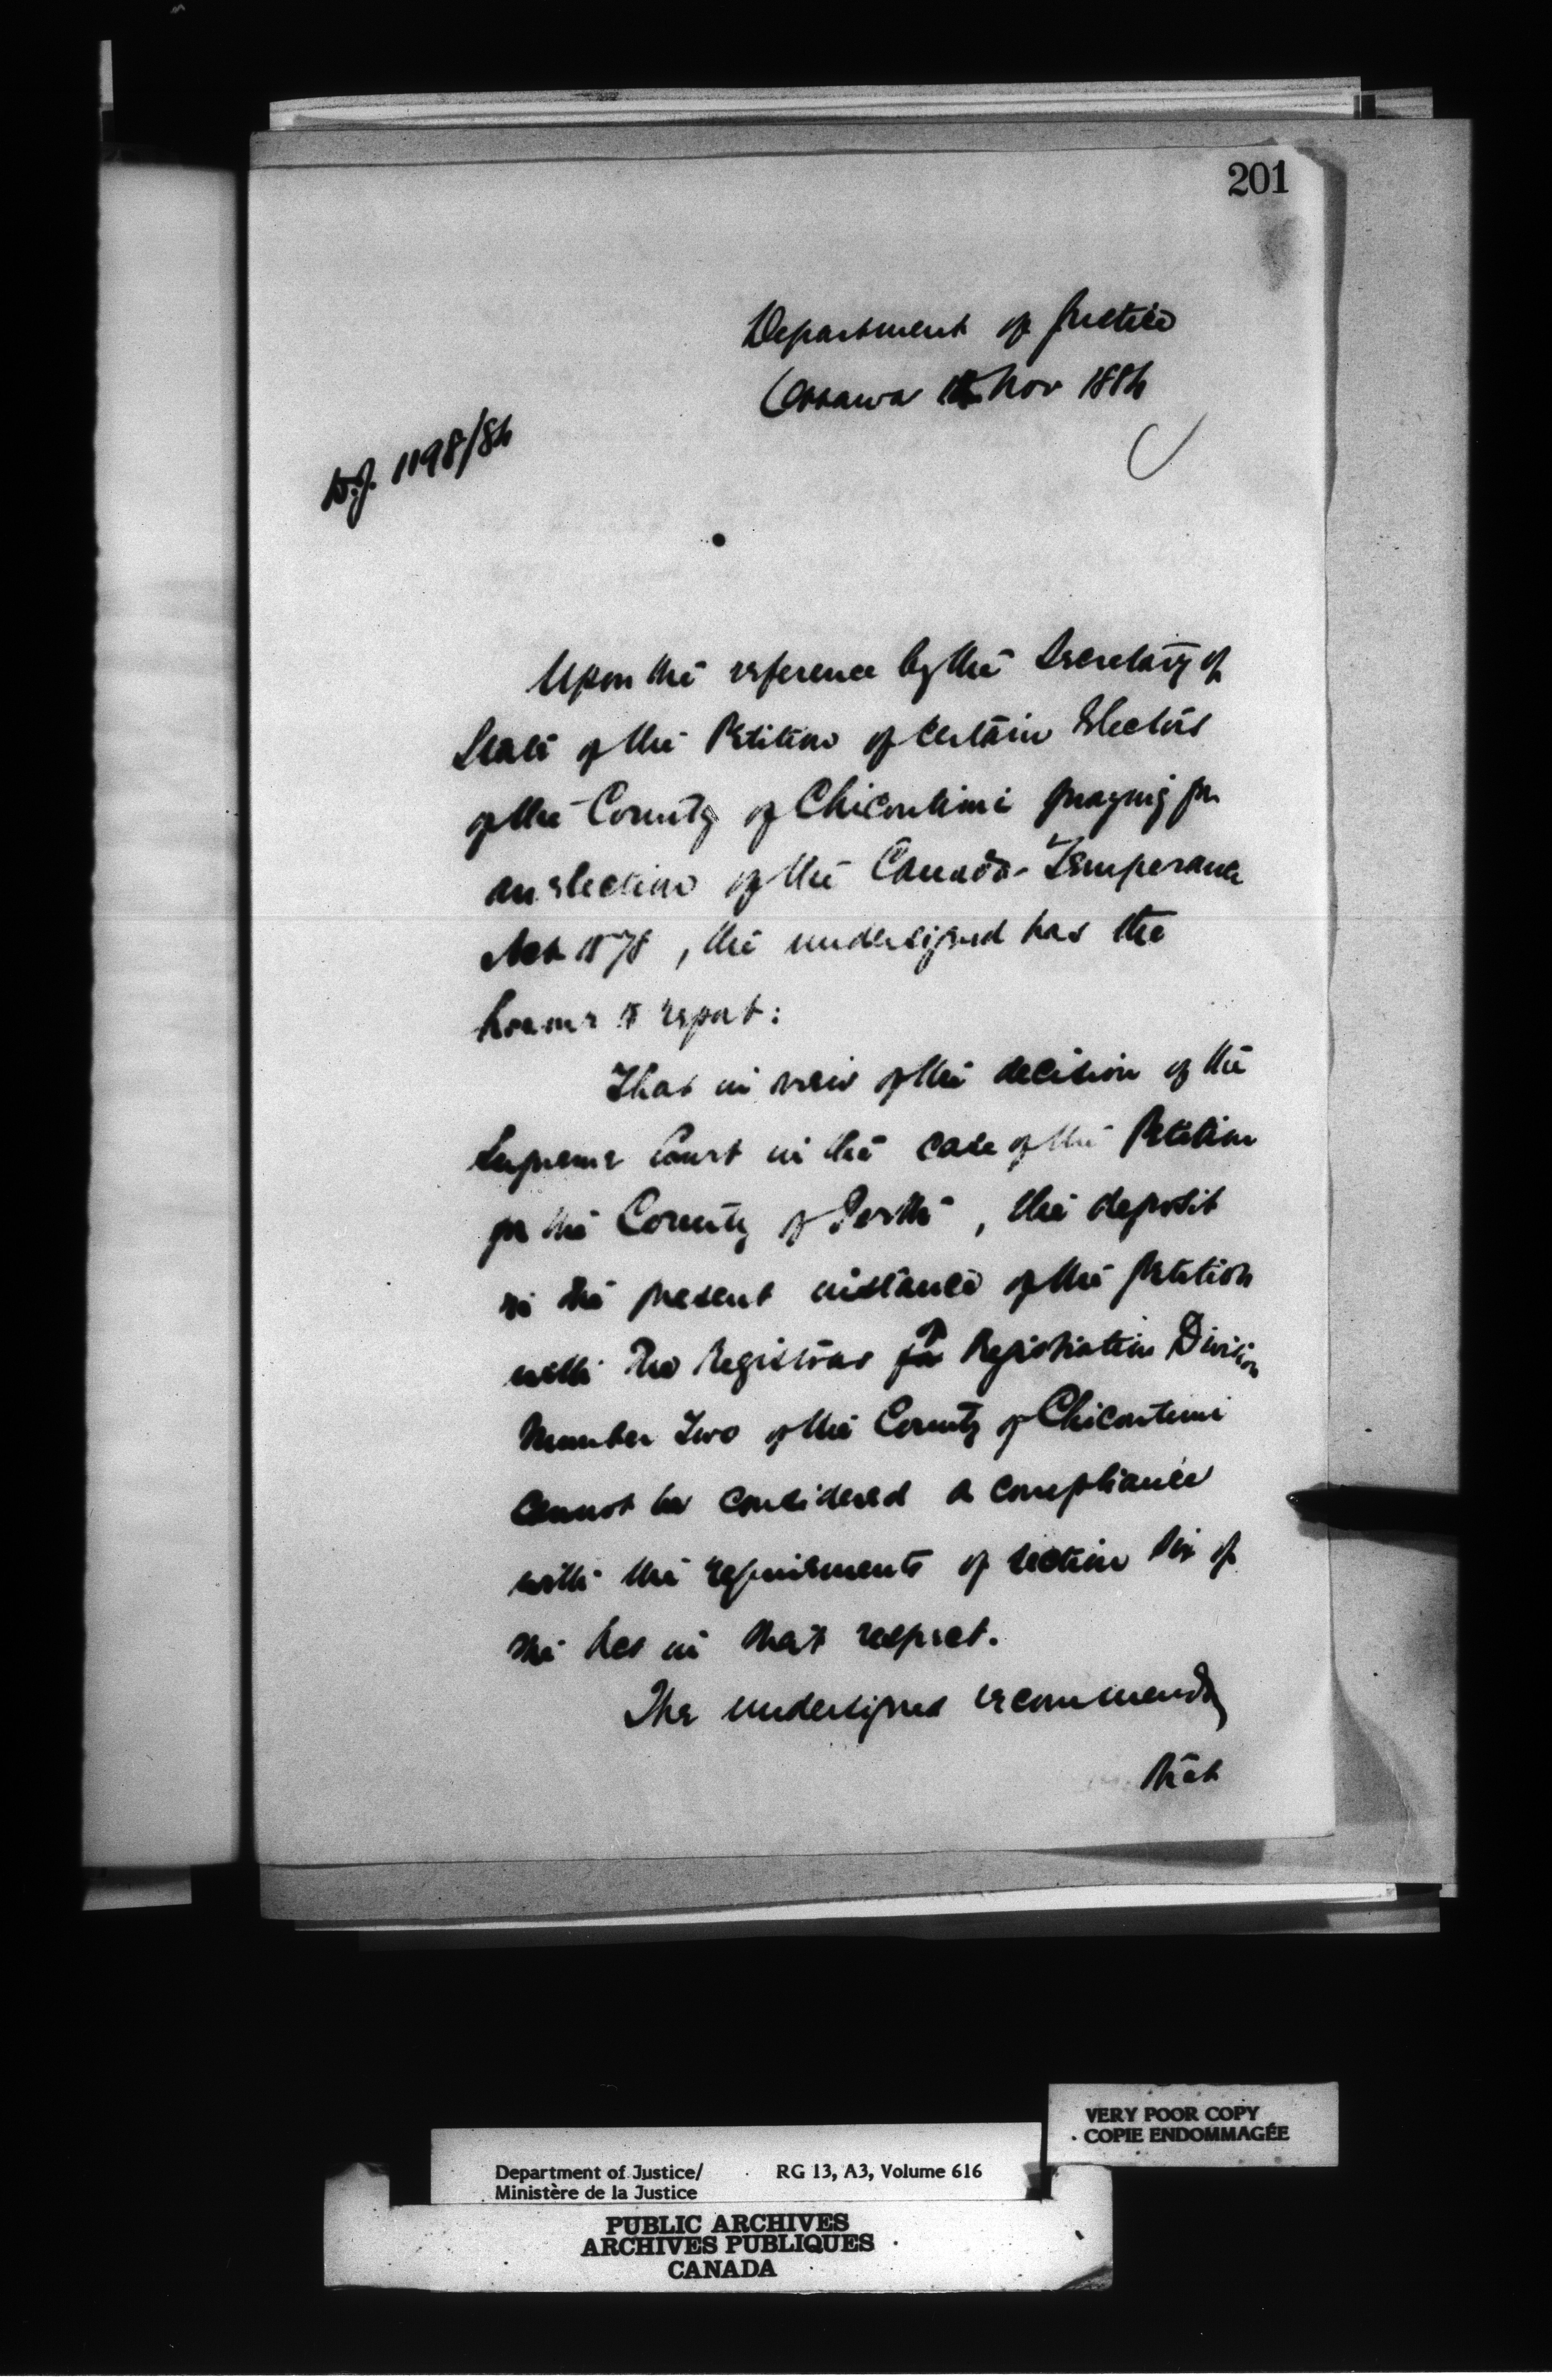 201
Department of Justice
Ottawa Nov 1884
D.J. 1198/84
Upon the reference by the Secretary of
State of the Petition of certain Electors
of the County of Chicoutimi praying for
an election of the Canada Temperance
Act 1878, the undersigned has the
honour to report:
That in view of the decision of the
Supreme Court in the case of the Petition
for the County of Perth, the deposit
in the present instance of the petition
with the Registrar for Registration Division
Number Two of the County of Chicoutimi
cannot be considered a compliance
with the requirements of section six of
the Act in that respect.
The undersigned recommends
that
VERY POOR COPY
COPIE ENDOMMAGÉE
Department of Justice/ RG 13, A3, Volume 616
Ministère de la Justice
PUBLIC ARCHIVES
ARCHIVES PUBLIQUES
CANADA